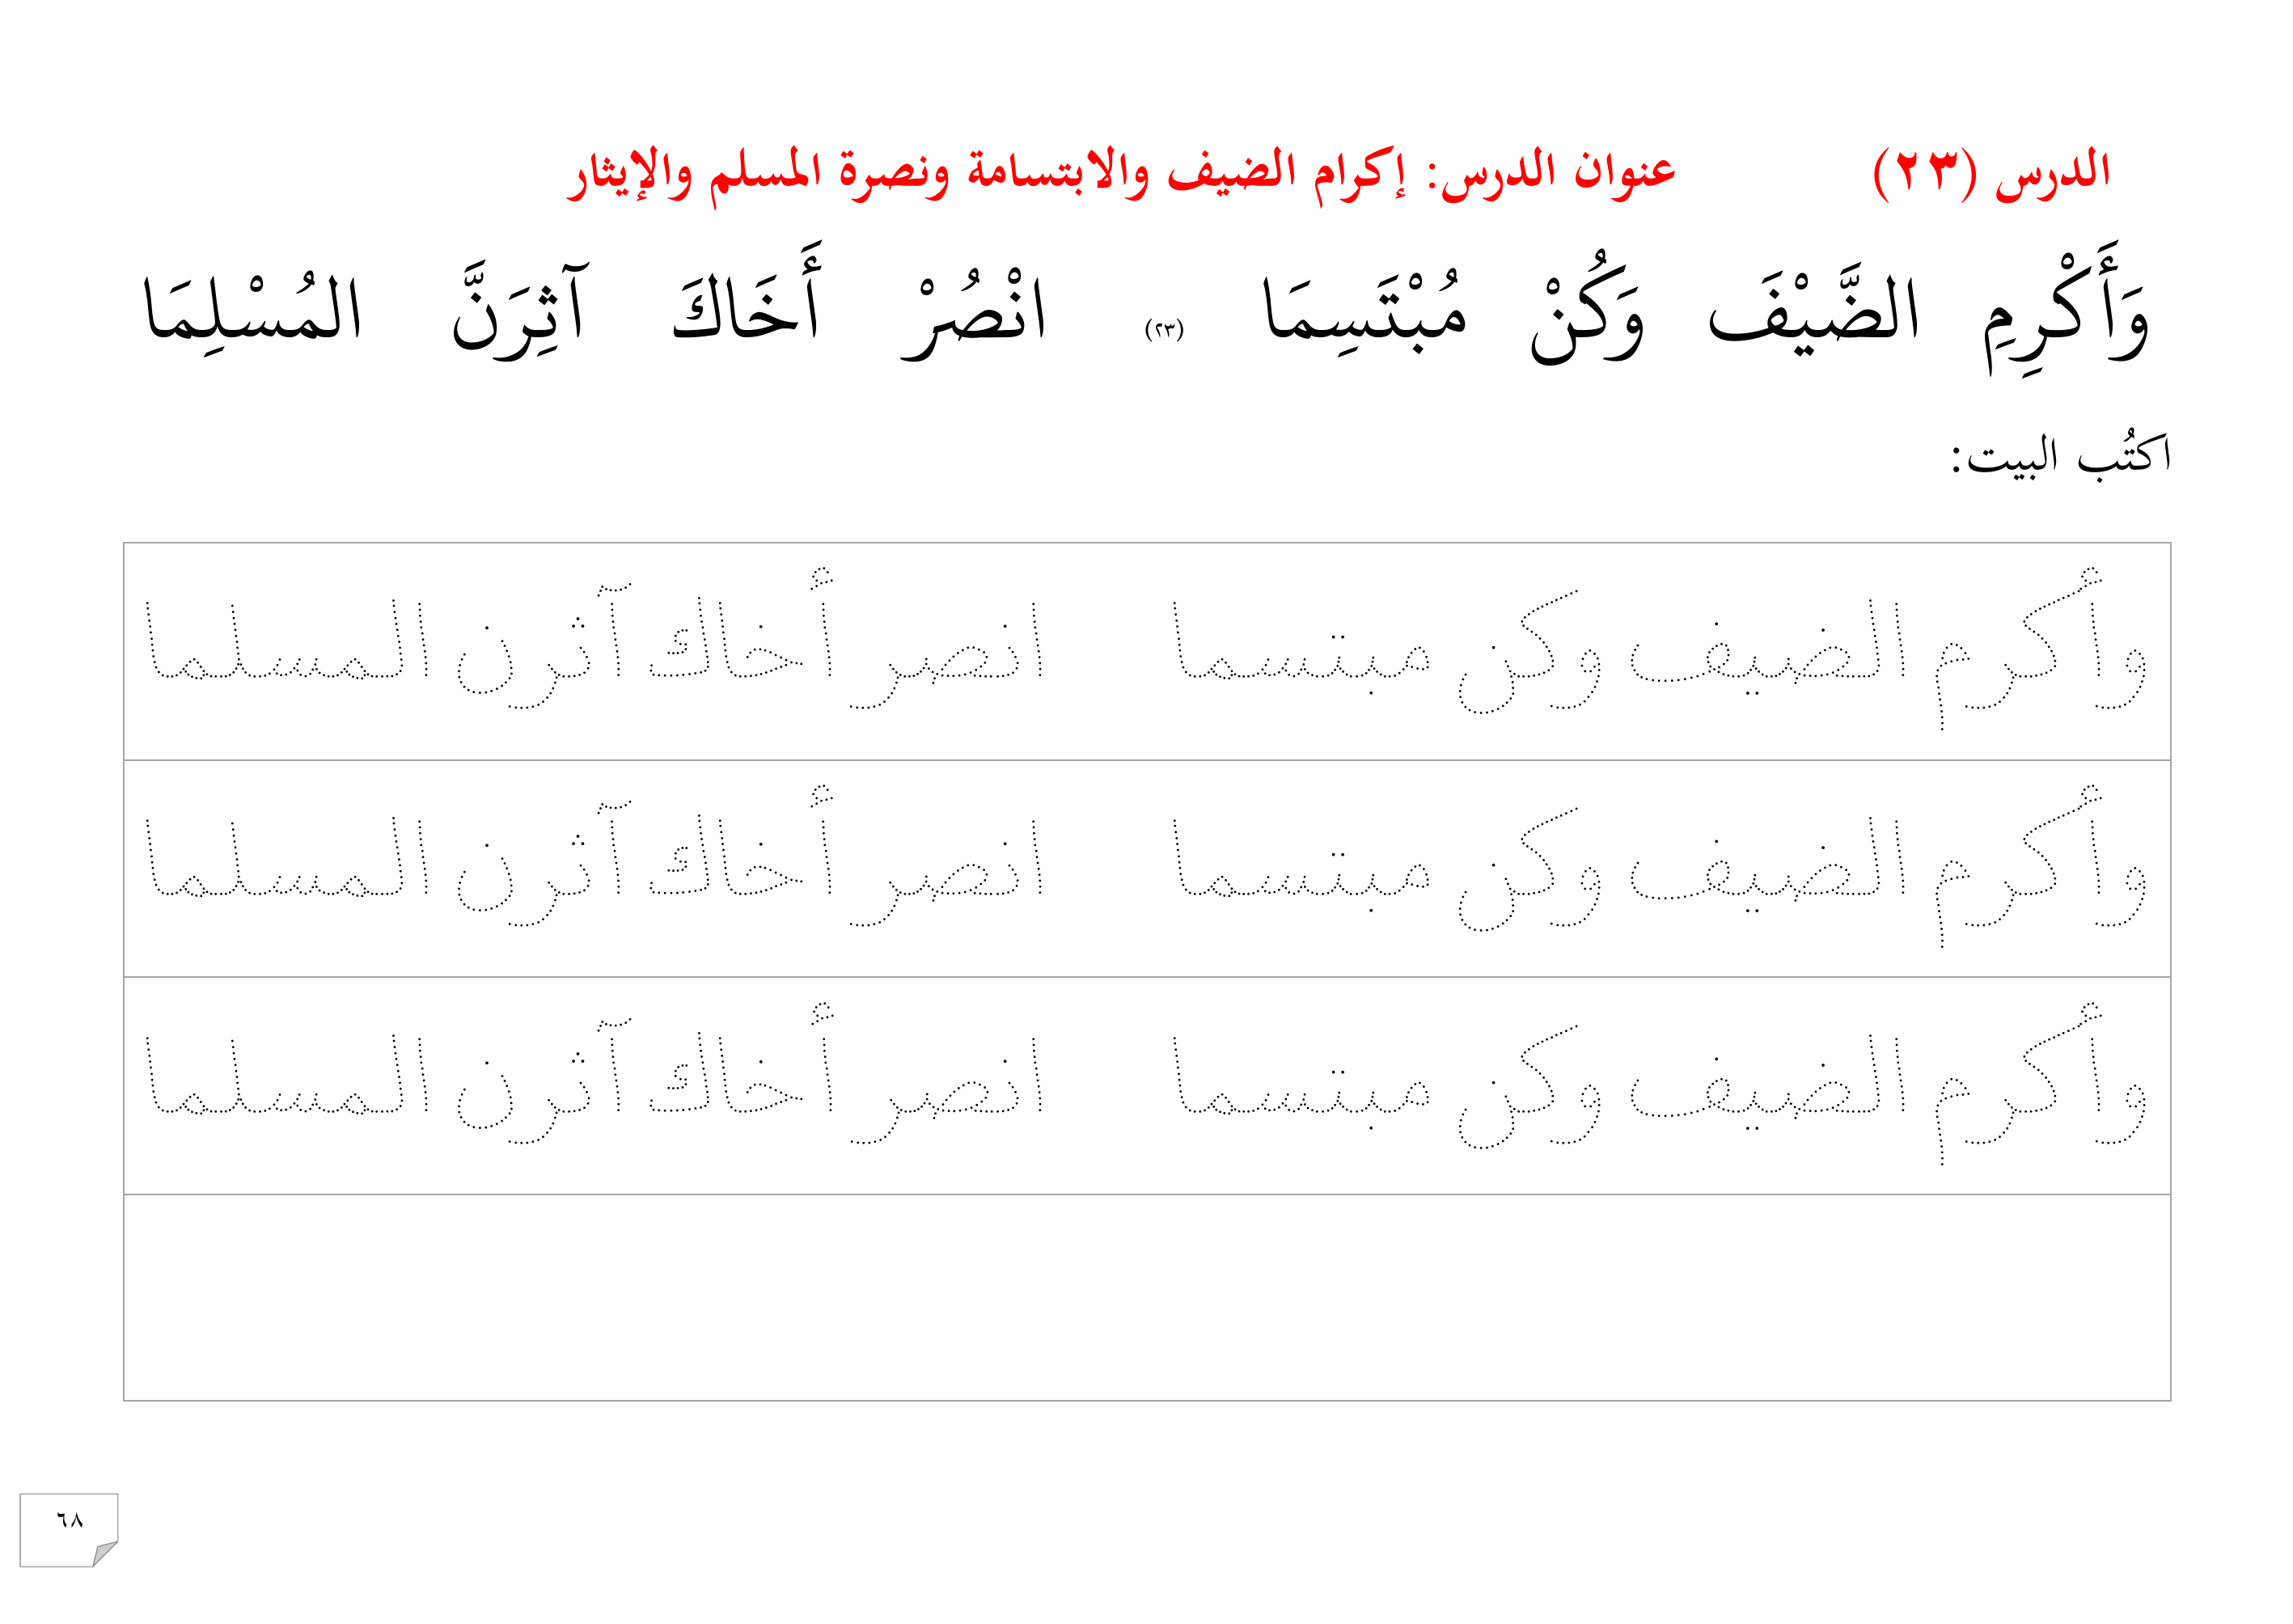 الدرس (٢٣) عنوان الدرس: إكرام الضيف والابتسامة ونصرة المسلم والإيثار
وَأَكْرِمِ الضَّيْفَ وَكُنْ مُبْتَسِمَا (٢٣) انْصُرْ أَخَاكَ آثِرَنَّ المُسْلِمَا
اكتُب البيت:
وأكرم الضيف وكن مبتسما انصر أخاك آثرن المسلما
وأكرم الضيف وكن مبتسما انصر أخاك آثرن المسلما
وأكرم الضيف وكن مبتسما انصر أخاك آثرن المسلما
٦٨